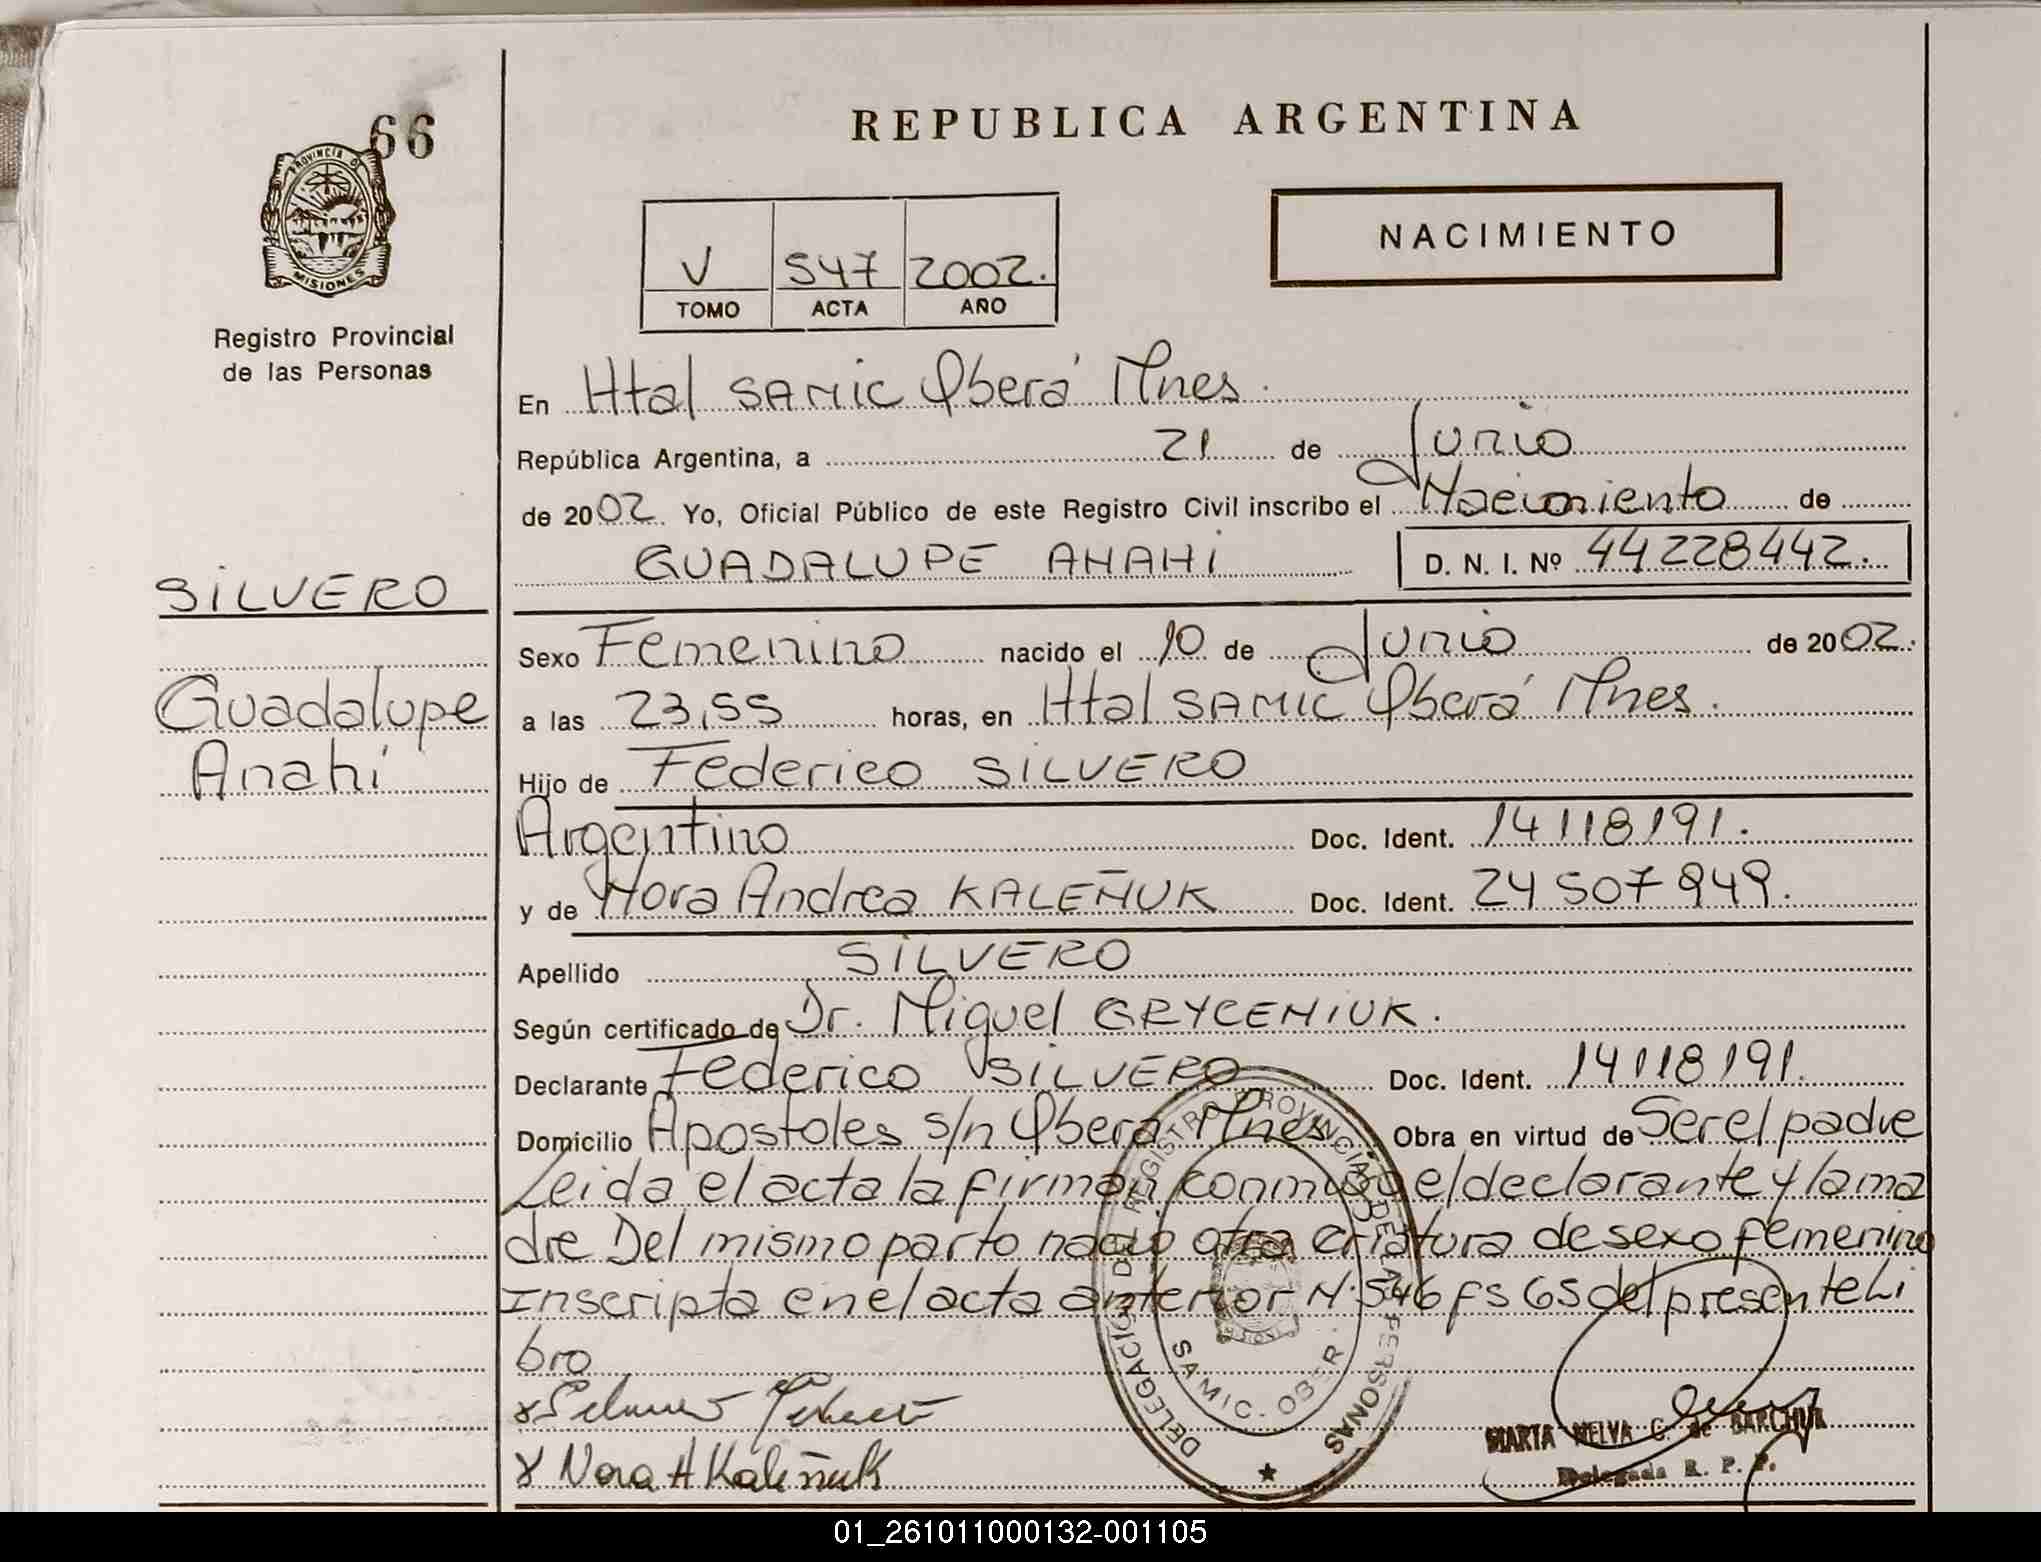 66
PROVINCIA DE
MISIONES
Registro Provincial
de las Personas
REPUBLICA ARGENTINA
NACIMIENTO
V 547 2002.
TOMO ACTA AÑO
En Htal SAMIC Oberá Mnes.
República Argentina, a 21 de Junio
de 2002 Yo, Oficial Público de este Registro Civil inscribo el Nacimiento de
GUADALUPE ANAHI D. N. I. Nº 44228442.
SILVERO
Guadalupe
Anahí
Sexo Femenino nacido el 10 de Junio de 2002.
a las 23,55 horas, en Htal SAMIC Oberá Mnes.
Hijo de Federico SILVERO
Argentino Doc. Ident. 14118191.
y de Nora Andrea KALEÑUK Doc. Ident. 24507849.
Apellido SILVERO
Según certificado de Dr. Miguel GRYCENIUK.
Declarante Federico SILVERO Doc. Ident. 14118191.
Domicilio Apostoles s/n Oberá Mnes Obra en virtud de Ser el padre
Leida el acta la firman conmigo el declarante y la ma
dre Del mismo parto nacio otra criatura de sexo femenino
Inscripta en el acta anterior N: 546 fs 65 del presente Li
bro
x Nora A Kaleñuk
DELEGACIÓN DEL REGISTRO PROVINCIAL DE LAS PERSONAS
SAMIC - OBER
MARTA NELVA G. de BARCHUK
Delegada R. P. P.
01_261011000132-001105